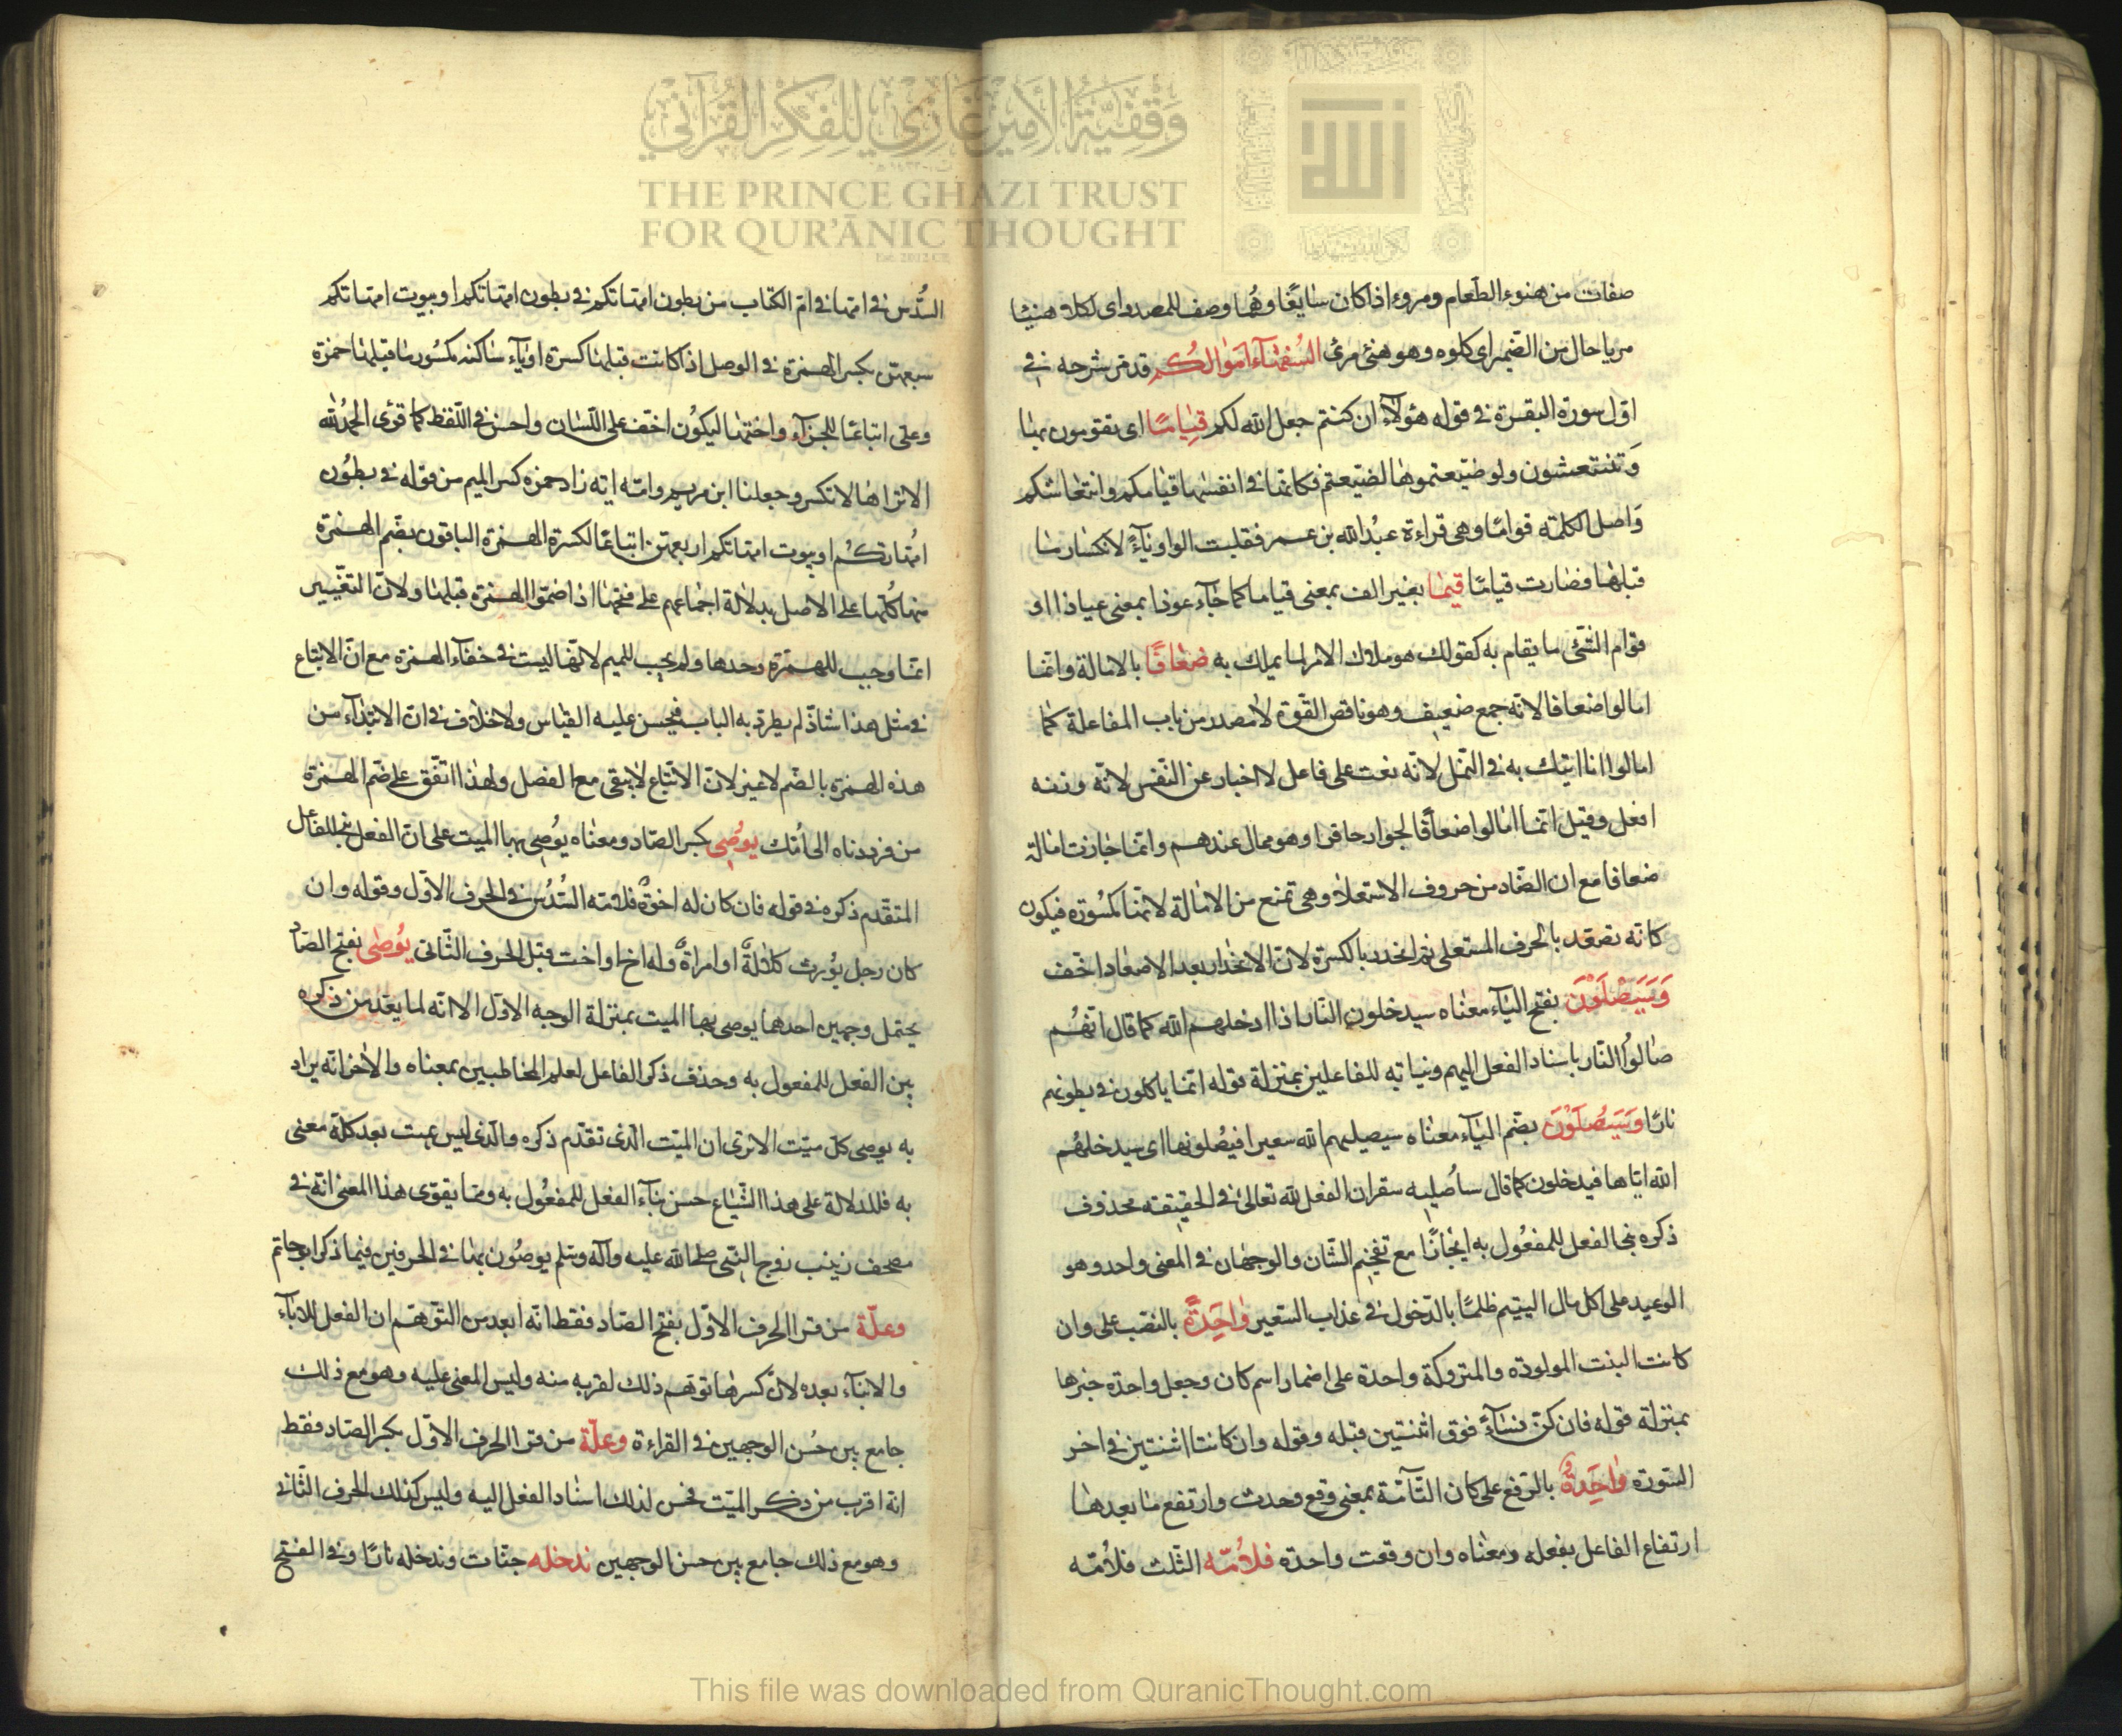 وقفية الأمير غازي للفكر القرآني
THE PRINCE GHAZI TRUST
FOR QUR'ĀNIC THOUGHT
صفات من هنوء الطعام ومروء اذا كان سايغًا وهُما وصف للمصدر اى اكلا هنيئا
مريا حال من الضمير اى كلوه وهو هنئ مرئ السُفهآء اموالكُم قد مر شرحه فى
اوّل سورة البقرة فى قوله هؤلآء ان كنتم جعل الله لكم قِيامًا اى تقومون بها
وَتنتعشون ولو ضيعتموها لضيعتم فكانها فى انفسها قيامكم وانتعاشكم
وَاصل الكلمة قوامًا وهى قراءة عبدُ الله بن عمر فقلبت الواو يآءً لانكسار ما
قبلها فصارت قيامًا قيمًا بغير الف بمعنى قياما كما جآء عوذا بمعنى عياذا او
قوام الشّئ ما يقام به كقولك هو ملاك الامر لما يملك به ضعافًا بالامالة وانما
امالوا ضعافا لانه جمع ضعيف وهو ناقص القوّة لا مصدر من باب المفاعلة كما
امالوا انا اتيك به فى النمل لانه نعت على فاعل لا اخبار عن النّفس لانّه وزنه
افعل وقيل انما امالوا ضعافًا لجوار خافوا وهو ممال عندهم وانما جازت امالة
ضعافا مع ان الضّاد من حروف الاستعلا وهى تمنع من الامالة لانها مكسُورة فيكون
كانه تصعّد بالحرف المستعلى ثم انحدر بالكسرة لانّ الانحدار بعد الاصعاد اخّف
وَسَيَصْلَوْنَ بفتح اليآء معناه سيدخلون النّار اذا ادخلهم الله كما قال انهُم
صالوُا النّار باسناد الفعل اليهم وبنيانه للفاعلين بمنزلة قوله انما ياكلون فى بطونهم
نارًا وَسَيُصْلَوْنَ بضّم اليآء معناه سيصليهم الله سعيرا فيُصلونها اى سيدخلهُم
الله اياها فيدخلون كما قال ساُصليه سقر ان الفعل لله تعالى فى الحقيقة محذوف
ذكره بنى الفعل للمفعُول به ايجازًا مع تفخيم الشّان والوجهان فى المعنى واحد وهو
الوعيد على اكل مال اليتيم ظلمًا بالدّخول فى عذاب السّعير وٰاحِدَةً بالنصّب على وان
كانت البنت المولودة والمتروكة واحدة على اضمار اسم كان وجعل واحدة خبرها
بمنزلة قوله فان كنّ نسآءً فوق اثنتين قبله وقوله وان كانتا اثنتين فى اخر
السّورة وٰاحِدَةٌ بالرّفع على كان التّآمّة بمعنى وقع وحدث وارتفع ما بعدها
ارتفاع الفاعل بفعله ومعناه وان وقعت واحدة فلاُمّه الثّلث فلاُمّه
السُّدس فى امّها فى امّ الكتاب من بطون امّهاتكم فى بطون امّهاتكم او بيوت امّهاتكم
سبعهن بكسر الهمزة فى الوصل اذا كانت قبلها كسرة او يآء ساكنة مكسُور ما قبلها حمزة
وعلى اتباعًا للجزآء واختها ليكون اخّف على اللّسان واحسن فى اللّفظ كما قرئ الحمدُلله
الا تراها لا تكسر وجعلنا ابن مريم وامّه اية زاد حمزة كسر الميم من قوله فى بطُون
امّهاتكُم او بيوت امّهاتكم اربعهن اتباعًا لكسرة الهمزة الباقون بضّم الهمزة
منها كلّها على الاصل بدلالة اجماعهم على فتحها اذا ضمّوا الهمزة قبلها ولانّ التغّيير
انما وجب للهمزة وحدها ولم يجب للميم لانّها ليست فى خفآء الهمزة مع انّ الاتباع
فى مثل هذا شاذّ لم يطرد به الباب فيحسن عليه القياس ولا خلاف فى ان الابتدآء من
هذه الهمزة بالضّم لا غير لانّ الاتّباع لا يبقى مع الفصل ولهذا اتّفق على ضّم الهمزة
من فرددناه الى اُمّك يوُصِى بكسر الصّاد ومعناه يوُصِى بها الميت على ان الفعل بنى للفاعل
المتقّدم ذكره فى قوله فان كان له اخوةٌ فلامّه السّدُس فى الحرف الاوّل وقوله وان
كان رجل يوُرث كلالةً او امراةٌ وله اخ او اخت قبل الحرف الثّانى يوُصٰى بفتح الصّاد
يحتمل وجهين احدهما يوصى بها الميت بمنزلة الوجه الاوّل الا انّه لما يعد من ذكره
بين الفعل للمفعول به وحذف ذكر الفاعل لعلم المخاطبين بمعناه والاٰخر انّه يراد
به يوصى كلّ ميّت الا ترى ان الميّت الّذى تقدّم ذكره والّذى ليس بميت بعد كلّه معنى
به فللدلالة على هذا الشّياع حسن بنآء الفعل للمفعُول به ومما يقوّى هذا المعنى انّه فى
مصحف زينب زوج النّبى صلى الله عليه وآله وسلّم يوصُون بها فى الحرفين فيما ذكر ابو حاتم
وعلّة من قرا الحرف الاوّل بفتح الصّاد فقط انّه ابعد من التّوهّم ان الفعل للابآء
والابنآء بعده لانّ كسرها توهّم ذلك لقربه منه وليس المعنى عليه وهو مع ذلك
جامع بين حُسن الوجهين فى القراءة وعلّة من قرا الحرف الاوّل بكسر الصّاد فقط
انه اقرب من ذكر الميّت فحسن لذلك اسناد الفعل اليه وليس كذلك الحرف الثّانى
وهو مع ذلك جامع بين حسن الوجهين ندخله جنّات وندخله نارًا وفى الفتح
This file was downloaded from QuranicThought.com